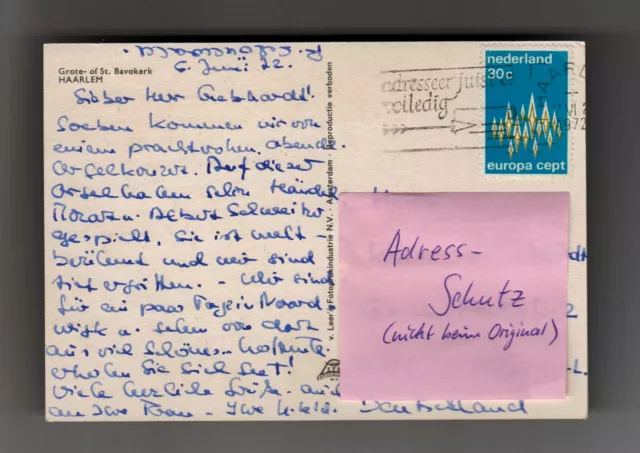 Grote- of St. Bavokerk
HAARLEM
6. Juni 72.
Lieber Herr Gebhardt!
Soeben kommen wir von
einem prachtvollen Abend-
orgelkonzert. Auf dieser
Orgel haben schon Händel
Mozart u. Albert Schweitzer
gespielt. Sie ist welt-
berühmt und wir sind
tief ergriffen. - Wir sind
für ein paar Tage in Noord
wijk u. sehen von dort
aus viel Schönes. Hoffentl.
erholen Sie sich gut!
Viele herzliche Grüße auch
an Ihre Frau - Ihre
v. Leer's Fotodrukindustrie N.V. - Amsterdam - Reproductie verboden
adresseer juist en
volledig
HAARL
1972
nederland
30c
europa cept
Adress-
Schutz
(nicht beim Original)
-L.
Deutschland